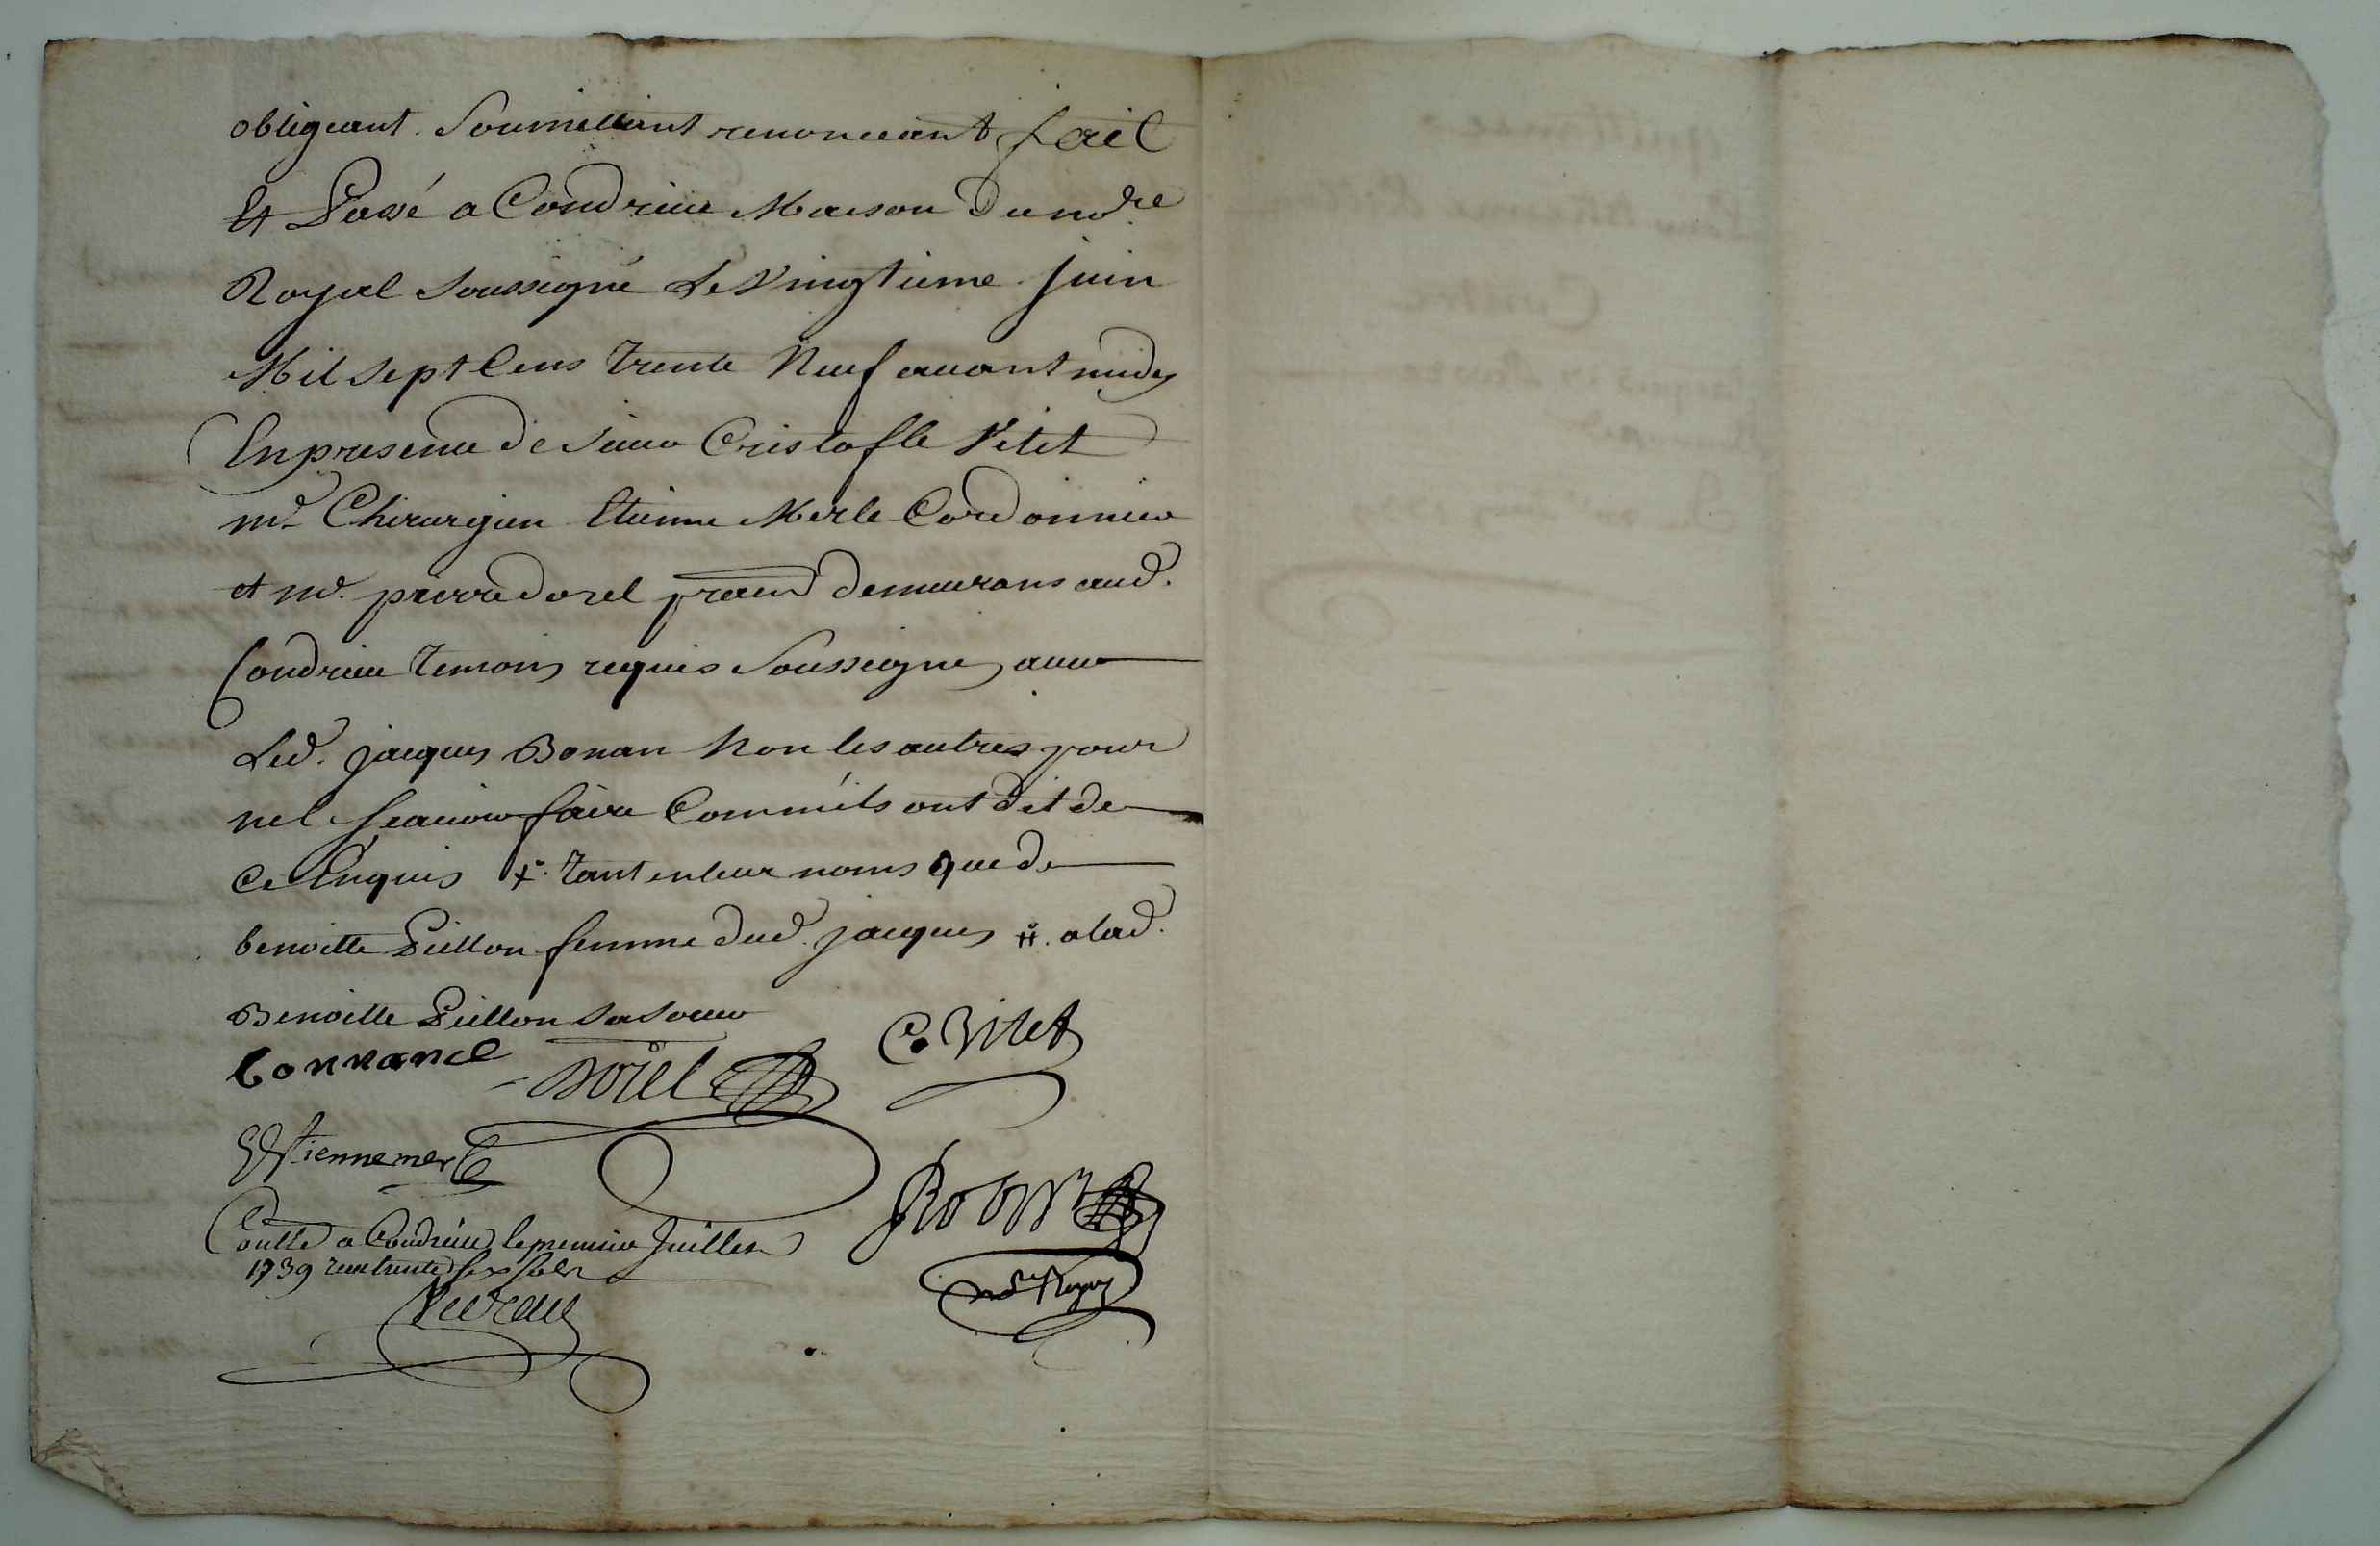 obligeant Soumettant renonceant fait
Et Passé a Condrieu Maison du no.re
Royal soussigné Le Vingtieme Juin
Mil sept Cens Trente Neuf avant midy
En presence de sieur Cristofle Vitet
m.e Chirurgien Etienne Merle Cordonnier
et m.e pierre dorel demeurans aud.
Condrieu Temoins requis Soussignes avec
Led. jacques Bonan Non les autres pour
ne l Scavoir faire Comm'ils ont dit de
Ce Enquis +. Tant en leur noms que de
benoitte Pitton femme dud. jacques #. a lad.
Benoitte Pitton sa soeur
bonnanel
Dorel
C. Vitet
Estienne merle
Contlé a Condrieu le premier Juillet
1739 receu trente six sols
no.re Royal